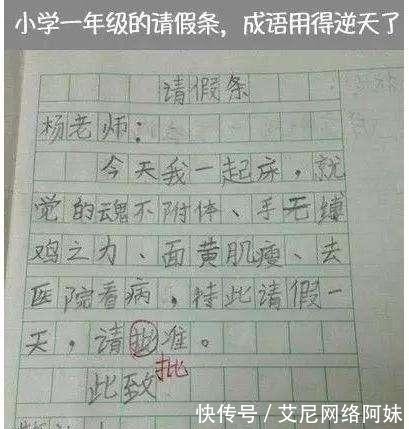 小学一年级的请假条，成语用得逆天了
请假条
杨老师：
今天我一起床，就
觉的魂不附体、手无缚
鸡之力、面黄肌瘦、去
医院看病，特此请假一
天，请批准。
批
此致
快传号 / 艾尼网络阿妹